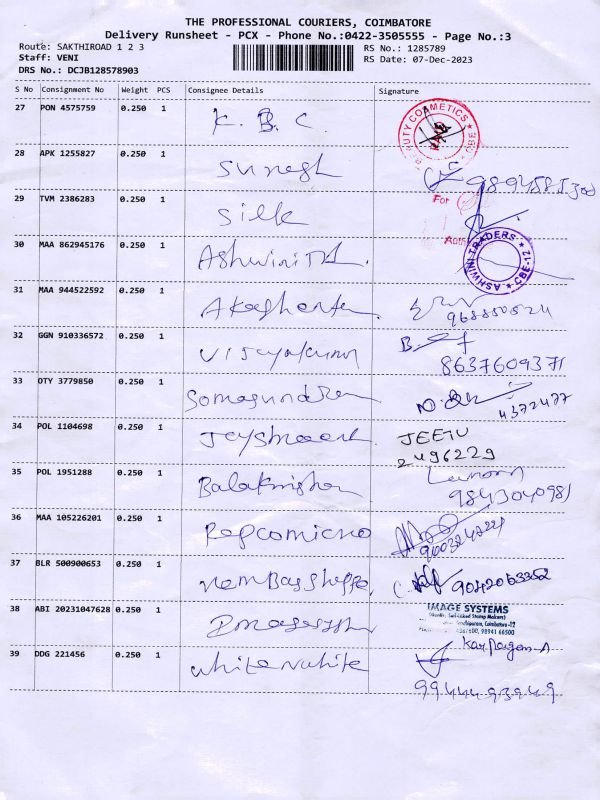 THE PROFESSIONAL COURIERS, COIMBATORE
Delivery Runsheet - PCX - Phone No.:0422-3505555 - Page No.:3
Route: SAKTHIROAD 1 2 3
RS No.: 1285789
Staff: VENI
RS Date: 07-Dec-2023
DRS No.: DCJB128578903
S No Consignment No Weight PCS Consignee Details Signature
27 PON 4575759 0.250 1 K. B. C. BEAUTY COSMETICS ★ CBE
28 APK 1255827 0.250 1 Suresh
29 TVM 2386283 0.250 1 Silk For
30 MAA 862945176 0.250 1 Ashwini ASHWINI TRADERS ★ CBE-12
31 MAA 944522592 0.250 1
32 GGN 910336572 0.250 1 Vijayakumar 8637609371
33 OTY 3779850 0.250 1 Somasundaram 4372477
34 POL 1104698 0.250 1 JEETU
2496229
35 POL 1951288 0.250 1 Balakrishnan
9843040981
36 MAA 105226201 0.250 1 Repcomicro
37 BLR 500900653 0.250 1 9042063352
38 ABI 20231047628 0.250 1 IMAGE SYSTEMS
Coimbatore -12
98941 66500
39 DDG 221456 0.250 1 whitenwhite Karpagam A
9944493949